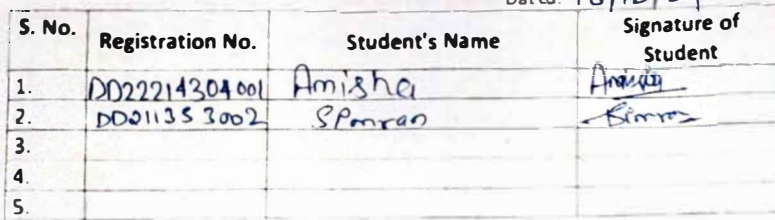 S. No. Registration No. Student's Name Signature of Student
1. DD22214304001 Amisha
2. DD211353002
3.
4.
5.